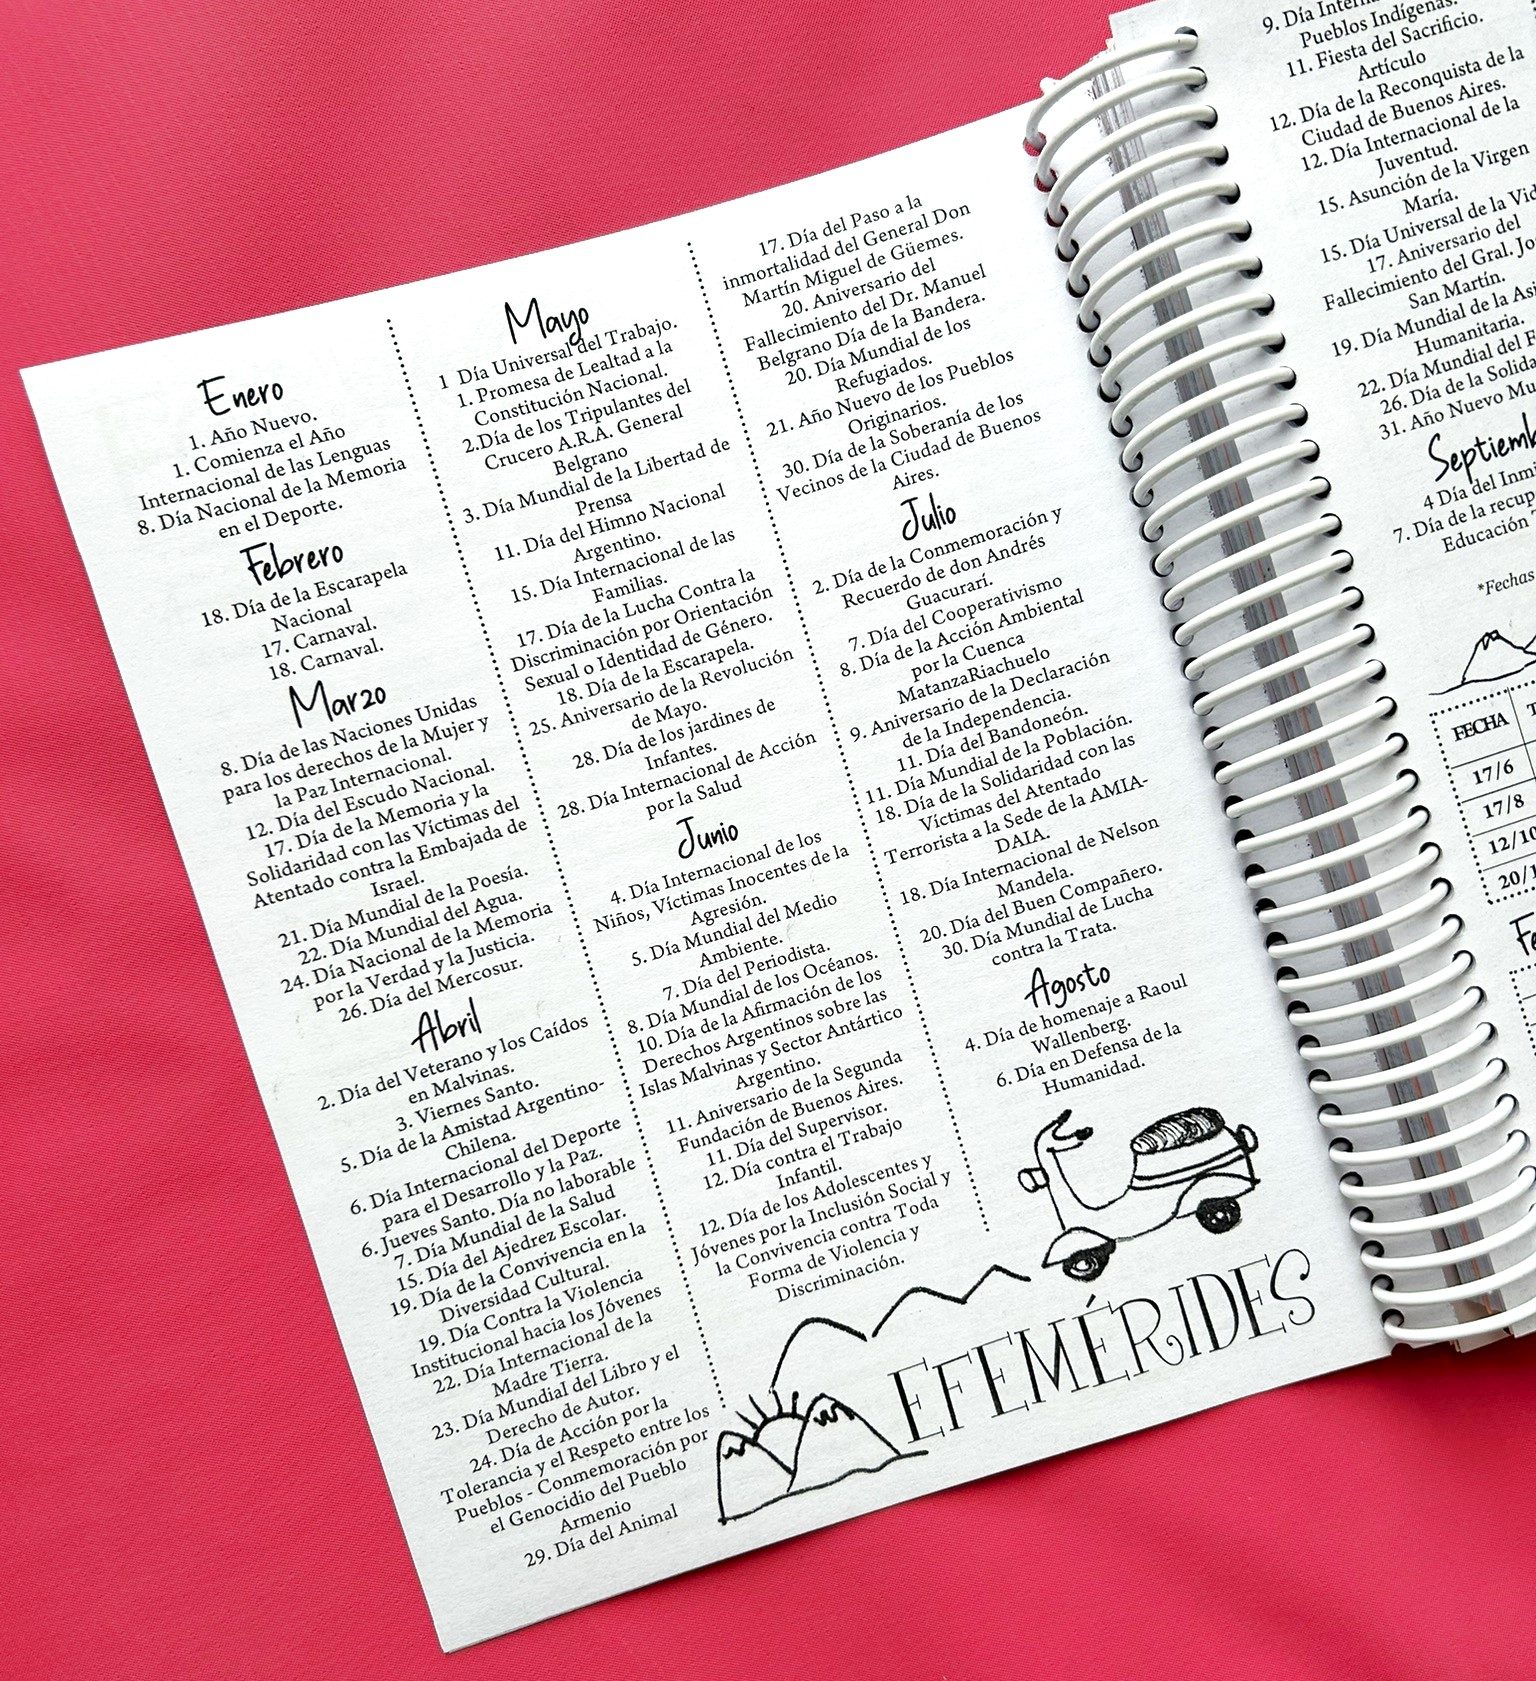 Enero
1. Año Nuevo.
1. Comienza el Año
Internacional de las Lenguas
8. Día Nacional de la Memoria
en el Deporte.
Febrero
18. Día de la Escarapela
Nacional
17. Carnaval.
18. Carnaval.
Marzo
8. Día de las Naciones Unidas
para los derechos de la Mujer y
la Paz Internacional.
12. Día del Escudo Nacional.
17. Día de la Memoria y la
Solidaridad con las Víctimas del
Atentado contra la Embajada de
Israel.
21. Día Mundial de la Poesía.
22. Día Mundial del Agua.
24. Día Nacional de la Memoria
por la Verdad y la Justicia.
26. Día del Mercosur.
Abril
2. Día del Veterano y los Caídos
en Malvinas.
3. Viernes Santo.
5. Día de la Amistad Argentino-
Chilena.
6. Día Internacional del Deporte
para el Desarrollo y la Paz.
6. Jueves Santo. Día no laborable
7. Día Mundial de la Salud
15. Día del Ajedrez Escolar.
19. Día de la Convivencia en la
Diversidad Cultural.
19. Día Contra la Violencia
Institucional hacia los Jóvenes
22. Día Internacional de la
Madre Tierra.
23. Día Mundial del Libro y el
Derecho de Autor.
24. Día de Acción por la
Tolerancia y el Respeto entre los
Pueblos - Conmemoración por
el Genocidio del Pueblo
Armenio
29. Día del Animal
Mayo
1 Día Universal del Trabajo.
1. Promesa de Lealtad a la
Constitución Nacional.
2.Día de los Tripulantes del
Crucero A.R.A. General
Belgrano
3. Día Mundial de la Libertad de
Prensa
11. Día del Himno Nacional
Argentino.
15. Día Internacional de las
Familias.
17. Día de la Lucha Contra la
Discriminación por Orientación
Sexual o Identidad de Género.
18. Día de la Escarapela.
25. Aniversario de la Revolución
de Mayo.
28. Día de los jardines de
Infantes.
28. Día Internacional de Acción
por la Salud
Junio
4. Día Internacional de los
Niños, Víctimas Inocentes de la
Agresión.
5. Día Mundial del Medio
Ambiente.
7. Día del Periodista.
8. Día Mundial de los Océanos.
10. Día de la Afirmación de los
Derechos Argentinos sobre las
Islas Malvinas y Sector Antártico
Argentino.
11. Aniversario de la Segunda
Fundación de Buenos Aires.
11. Día del Supervisor.
12. Día contra el Trabajo
Infantil.
12. Día de los Adolescentes y
Jóvenes por la Inclusión Social y
la Convivencia contra Toda
Forma de Violencia y
Discriminación.
17. Día del Paso a la
inmortalidad del General Don
Martín Miguel de Güemes.
20. Aniversario del
Fallecimiento del Dr. Manuel
Belgrano Día de la Bandera.
20. Día Mundial de los
Refugiados.
21. Año Nuevo de los Pueblos
Originarios.
30. Día de la Soberanía de los
Vecinos de la Ciudad de Buenos
Aires.
Julio
2. Día de la Conmemoración y
Recuerdo de don Andrés
Guacurarí.
7. Día del Cooperativismo
8. Día de la Acción Ambiental
por la Cuenca
MatanzaRiachuelo
9. Aniversario de la Declaración
de la Independencia.
11. Día del Bandoneón.
11. Día Mundial de la Población.
18. Día de la Solidaridad con las
Víctimas del Atentado
Terrorista a la Sede de la AMIA-
DAIA.
18. Día Internacional de Nelson
Mandela.
20. Día del Buen Compañero.
30. Día Mundial de Lucha
contra la Trata.
Agosto
4. Día de homenaje a Raoul
Wallenberg.
6. Día en Defensa de la
Humanidad.
EFEMÉRIDES
9. Día
Pueblos Indígenas.
11. Fiesta del Sacrificio.
Artículo
12. Día de la Reconquista de la
Ciudad de Buenos Aires.
12. Día Internacional de la
Juventud.
15. Asunción de la Virgen
María.
15. Día Universal de la
17. Aniversario del
Fallecimiento del Gral.
San Martín.
19. Día Mundial de la
Humanitaria.
22. Día Mundial del
26. Día de la
31. Año Nuevo
4 Día del
7. Día de la
Educación
*Fechas
FECHA
17/6
17/8